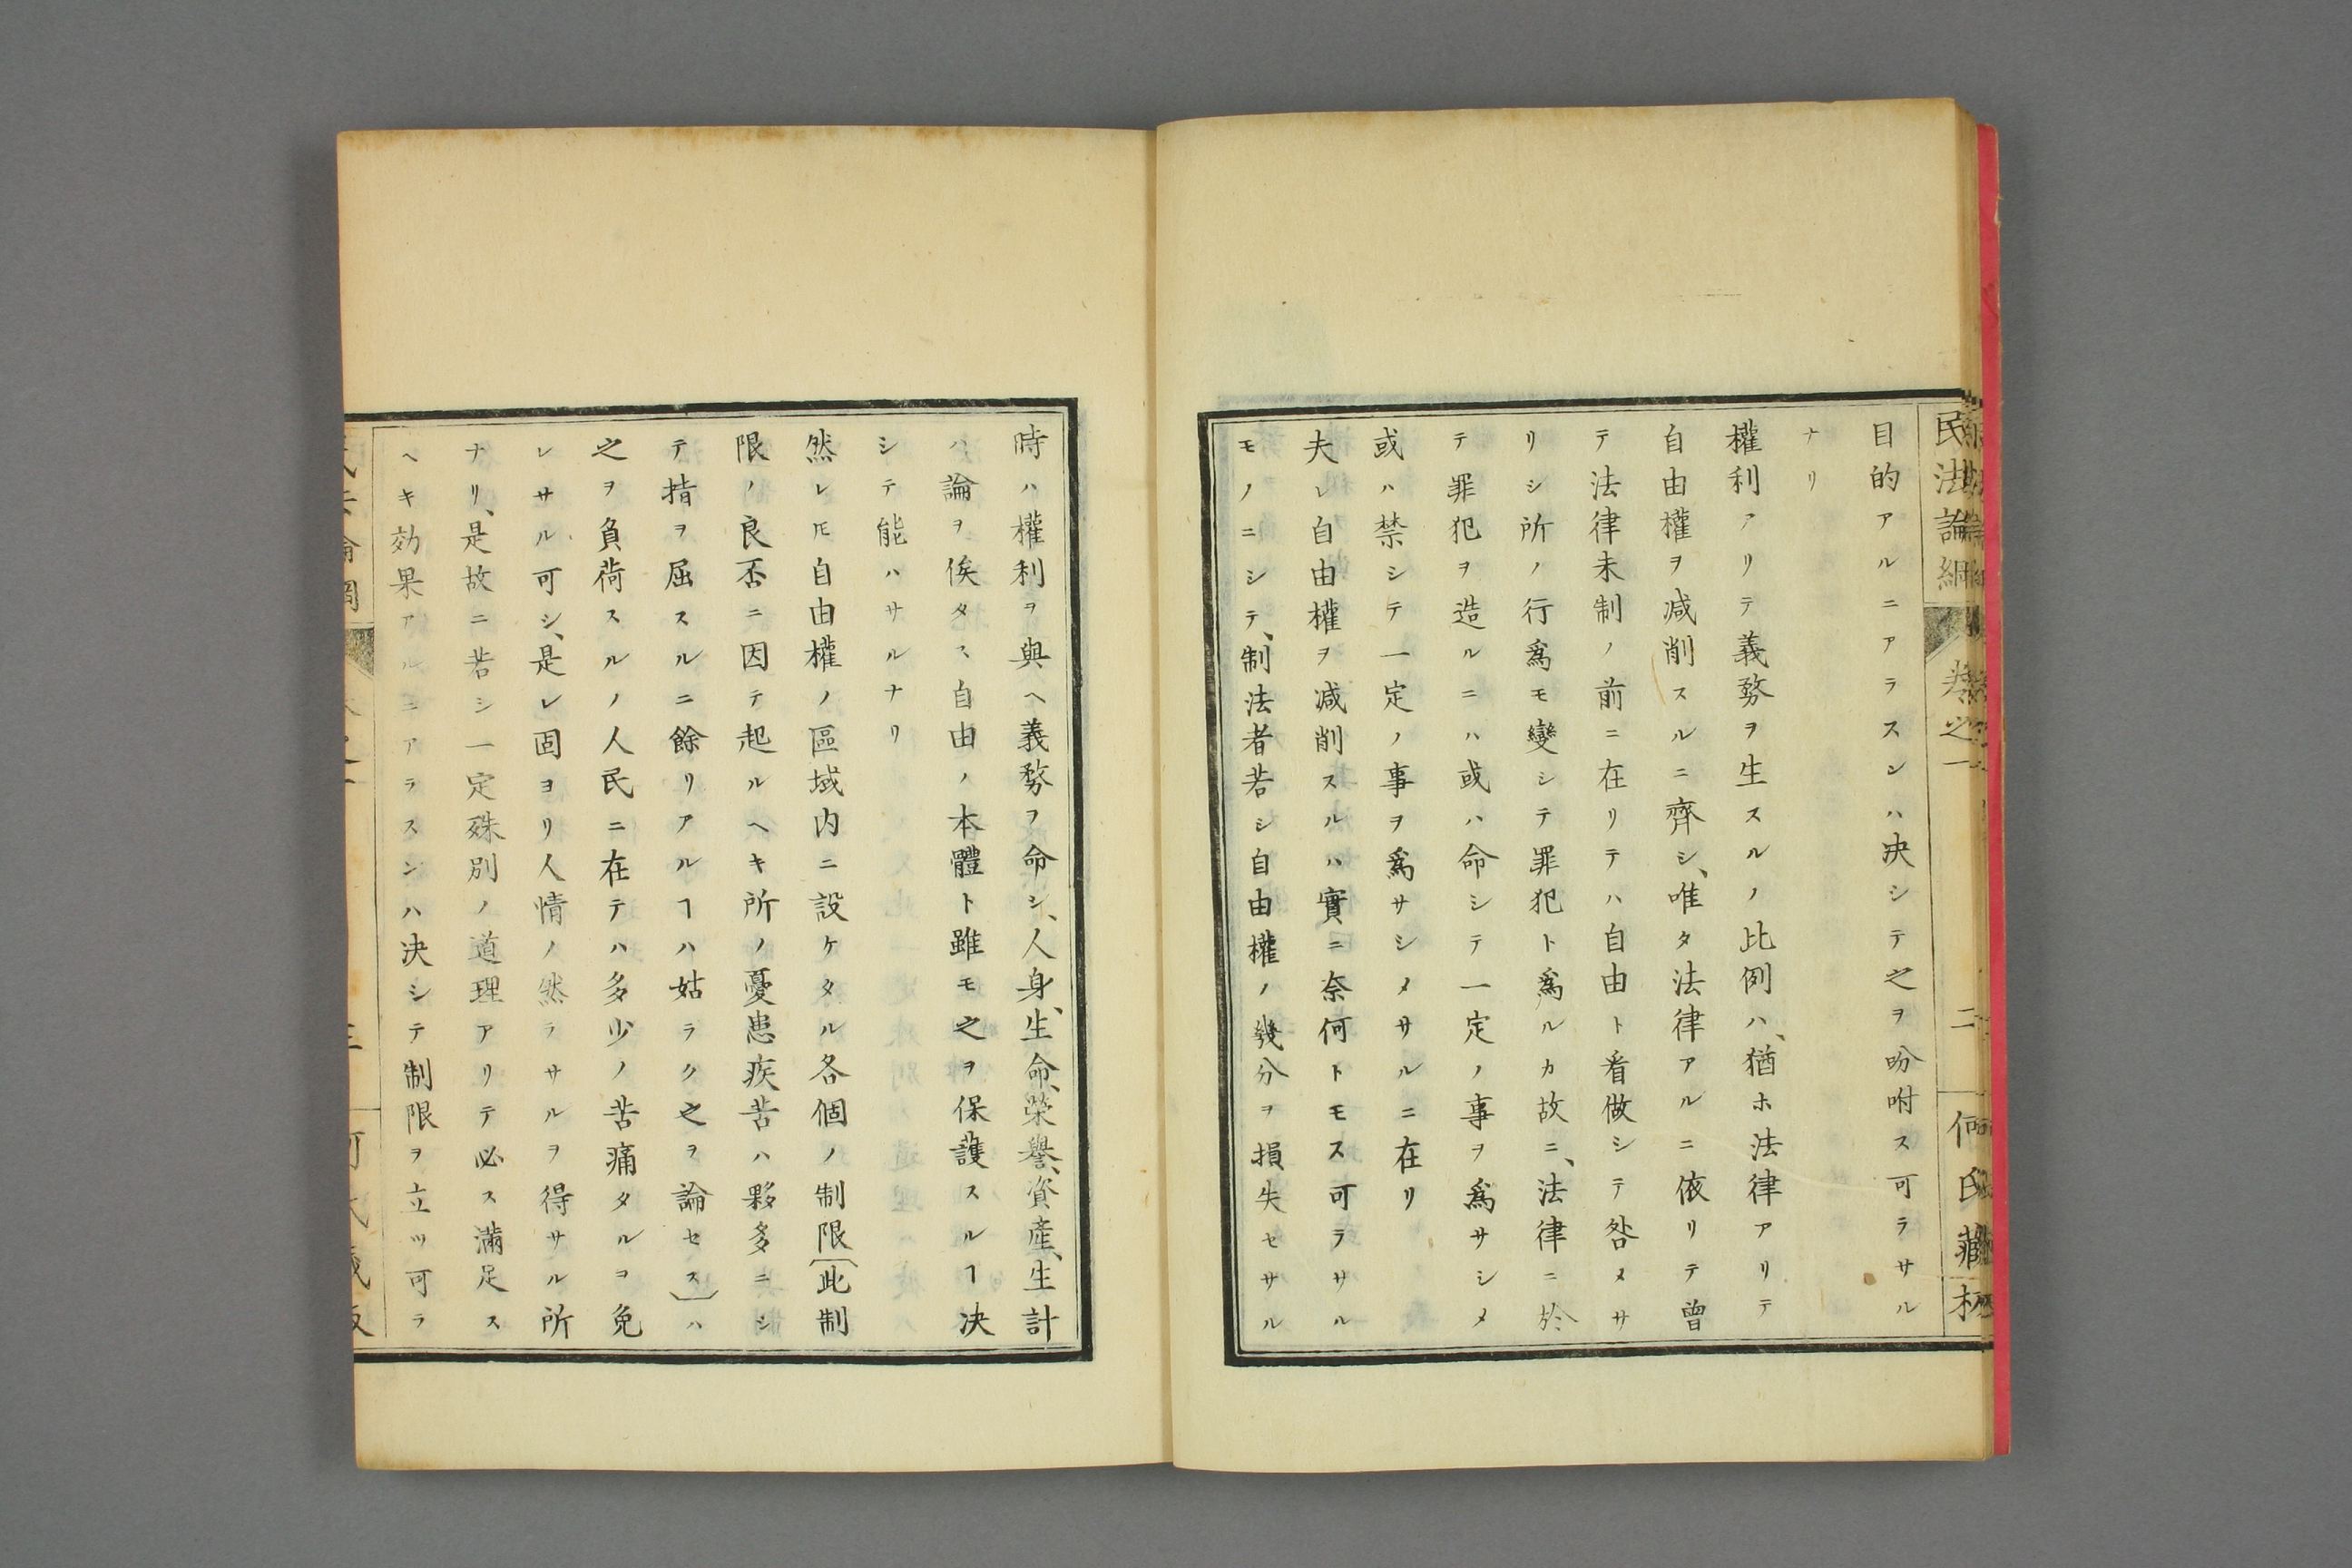 民法論綱 卷之一 二 何氏藏板
目的アルニアラスンハ决シテ之ヲ吩咐ス可ラサル
ナリ
權利アリテ義務ヲ生スルノ比例ハ、猶ホ法律アリテ
自由權ヲ减削スルニ齊シ、唯タ法律アルニ依リテ曾
テ法律未制ノ前ニ在リテハ自由ト看做シテ咎メサ
リシ所ノ行爲モ變シテ罪犯ト爲ルカ故ニ、法律ニ於
テ罪犯ヲ造ルニハ或ハ命シテ一定ノ事ヲ爲サシメ
或ハ禁シテ一定ノ事ヲ爲サシメサルニ在リ
夫レ自由權ヲ减削スルハ實ニ奈何トモス可ラサル
モノニシテ、制法者若シ自由權ノ幾分ヲ損失セサル
時ハ權利ヲ與ヘ義務ヲ命シ、人身、生命、榮譽、資產、生計
ハ論ヲ俟タス自由ノ本體ト雖モ之ヲ保護スルヿ决
シテ能ハサルナリ
然レ𪜈自由權ノ區域内ニ設ケタル各個ノ制限〔此制
限ノ良否ニ因テ起ルヘキ所ノ憂患疾苦ハ夥多ニシ
テ指ヲ屈スルニ餘リアルヿハ姑ラク之ヲ論セス〕ハ
之ヲ負荷スルノ人民ニ在テハ多少ノ苦痛タルヲ免
レサル可シ、是レ固ヨリ人情ノ然ラサルヲ得サル所
ナリ、是故ニ若シ一定殊別ノ道理アリテ必ス滿足ス
ヘキ効果アルニアラスンハ决シテ制限ヲ立ツ可ラ